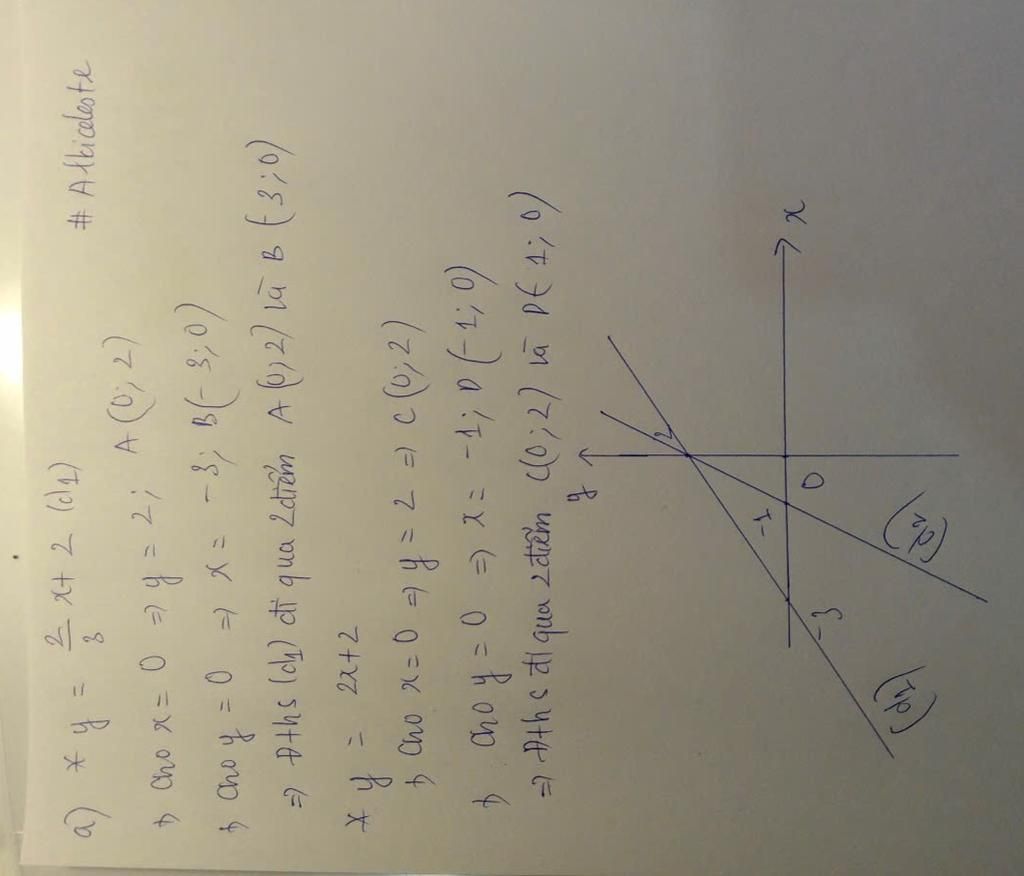 # Albiceleste
a) * y = 2/3 x + 2 (d1)
+) Cho x = 0 => y = 2; A (0; 2)
+) Cho y = 0 => x = -3; B (-3; 0)
=> Đths (d1) đi qua 2 điểm A (0; 2) và B (-3; 0)
* y = 2x+2
+) Cho x = 0 => y = 2 => C (0; 2)
+) Cho y = 0 => x = -1; D (-1; 0)
=> Đths đi qua 2 điểm C(0; 2) và D(-1; 0)
y
2
x
-1
0
-3
(d2)
(d1)